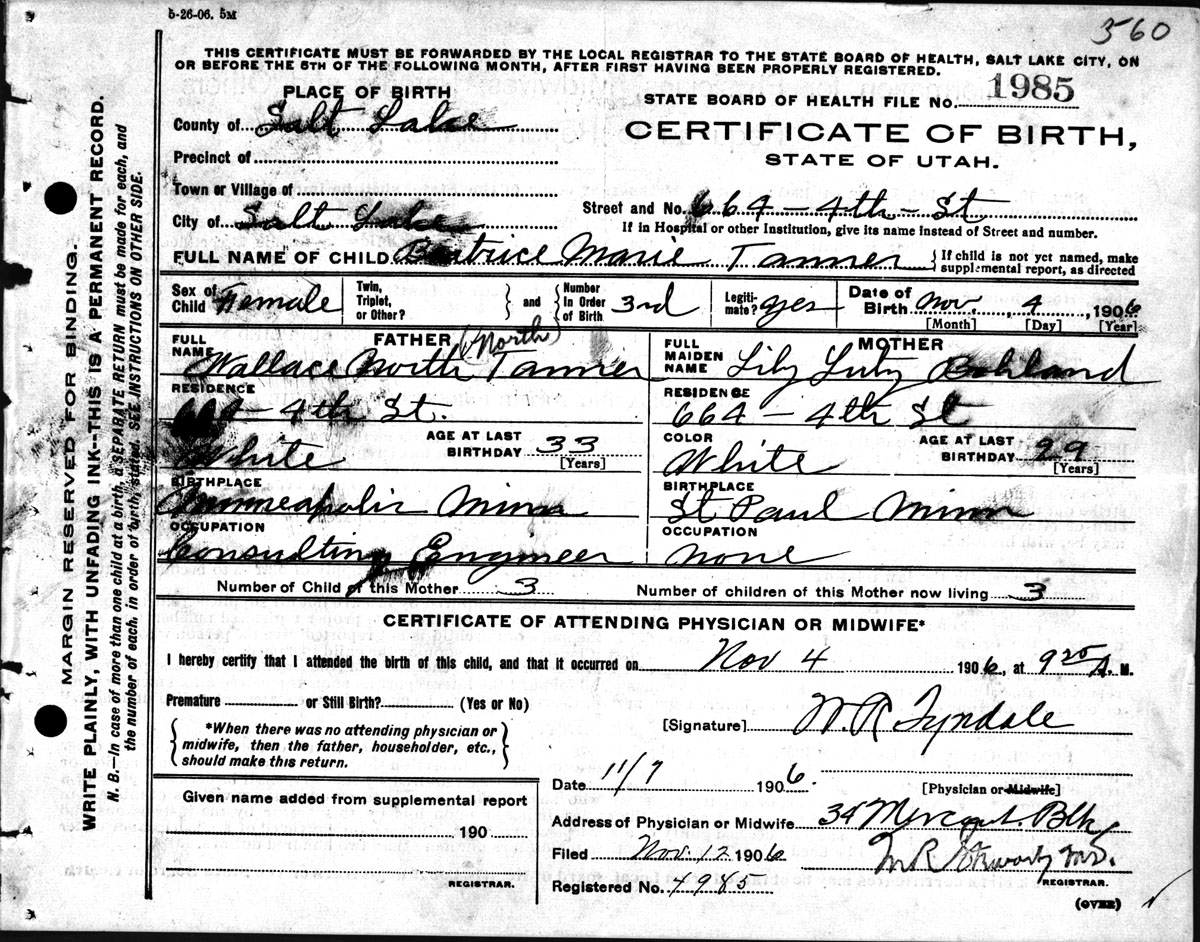 5-26-06. 5M
560
THIS CERTIFICATE MUST BE FORWARDED BY THE LOCAL REGISTRAR TO THE STATE BOARD OF HEALTH, SALT LAKE CITY, ON
OR BEFORE THE 5TH OF THE FOLLOWING MONTH, AFTER FIRST HAVING BEEN PROPERLY REGISTERED.
PLACE OF BIRTH
STATE BOARD OF HEALTH FILE No. 1985
County of Salt Lake
CERTIFICATE OF BIRTH,
STATE OF UTAH.
Precinct of
Town or Village of
City of Salt Lake
Street and No. 664 - 4th - St
If in Hospital or other Institution, give its name instead of Street and number.
FULL NAME OF CHILD Beatrice Marie Tanner
{ If child is not yet named, make
supplemental report, as directed
Sex of Child Female
Twin, Triplet, or Other? } and { Number In Order of Birth 3rd
Legitimate? yes
Date of Birth Nov. 4, 1906
[Month] [Day] [Year]
FATHER (North)
FULL NAME Wallace North Tanner
MOTHER
FULL MAIDEN NAME Lily Bohland
RESIDENCE
664 - 4th St.
RESIDENCE
664 - 4th St
AGE AT LAST BIRTHDAY 33 [Years]
White
COLOR
White
AGE AT LAST BIRTHDAY 29 [Years]
BIRTHPLACE
Minneapolis Minn
BIRTHPLACE
St Paul Minn
OCCUPATION
Consulting Engineer
OCCUPATION
none
Number of Child of this Mother 3
Number of children of this Mother now living 3
CERTIFICATE OF ATTENDING PHYSICIAN OR MIDWIFE*
I hereby certify that I attended the birth of this child, and that it occurred on Nov 4 1906, at 9 20 A. M.
Premature or Still Birth? (Yes or No)
*When there was no attending physician or
midwife, then the father, householder, etc.,
should make this return.
[Signature] W. R. Tyndale
Date 11/7 1906.
[Physician or Midwife]
Given name added from supplemental report
190
REGISTRAR.
Address of Physician or Midwife 34 Blk
Filed Nov. 12 1906
M.D.
REGISTRAR.
Registered No. 4985
(OVER)
MARGIN RESERVED FOR BINDING.
WRITE PLAINLY, WITH UNFADING INK--THIS IS A PERMANENT RECORD.
N. B.—In case of more than one child at a birth, a SEPARATE RETURN must be made for each, and
the number of each, in order of birth, stated. SEE INSTRUCTIONS ON OTHER SIDE.